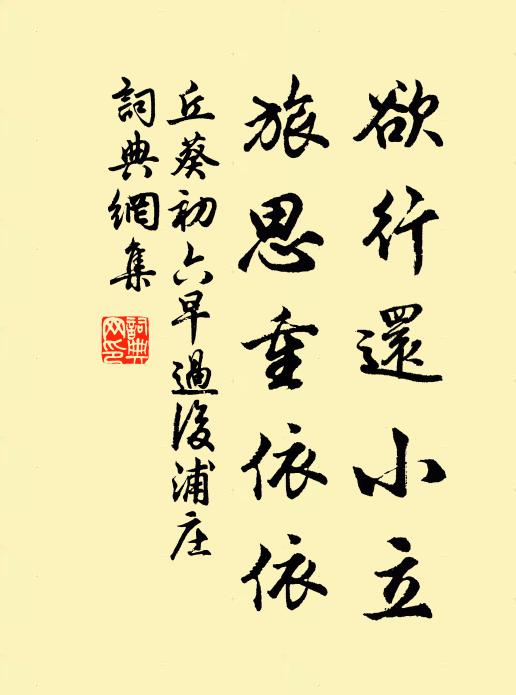 欲行還小立
旅思重依依
丘葵初六早過後浦庄
詞典網集
詞典网印